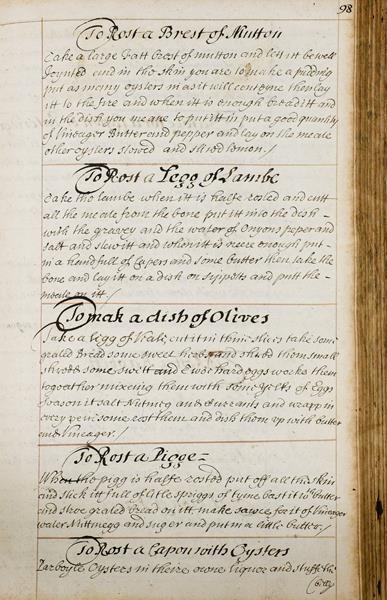 98
To Rost a Brest of Mutton
Take a large Fatt brest of mutton and lett itt be well
Joynted and in the skin you are to make a pudding
put as many oysters in as it will containe then lay
itt to the fire and when itt is enough bread itt and
in the dish you meane to putt itt in put a good quantity
of Vineager Butter and pepper and lay on the meate
other oysters stewed and sliced lemon /
To Rost a Legg of Lambe
Take the lambe when itt is halfe rosted and cutt
all the meate from the bone put itt into the dish
with the gravey and the water of onyons peper and
salt and stew itt and when itt is neere enough put
in a handfull of Capers and some butter then take the
bone and lay itt on a dish on sippitts and putt the
meate on itt /
To mak a dish of Olives
Take a legg of Veale cutt it in thinn slices take some
grated Bread some sweet herbs and shred them small
shred some swett and Ewer hard eggs worke them
togeather mixeing them with some yelks of Eggs
season it salt Nutmeg and Currants and wrapp in
every peice some rost them and dish them up with butter
and Vineager /
To Rost a Pigge
When the pigg is halfe rosted put off all the skin
and stick itt full of litle spriggs of tyme bast it wth butter
and stroe grated bread on itt make sawce for it of Vineager
water Nuttmegg and suger and put in a little butter /
To Rost a Capon with Oysters
Parboyle Oysters in theire owne liquor and stuffe the